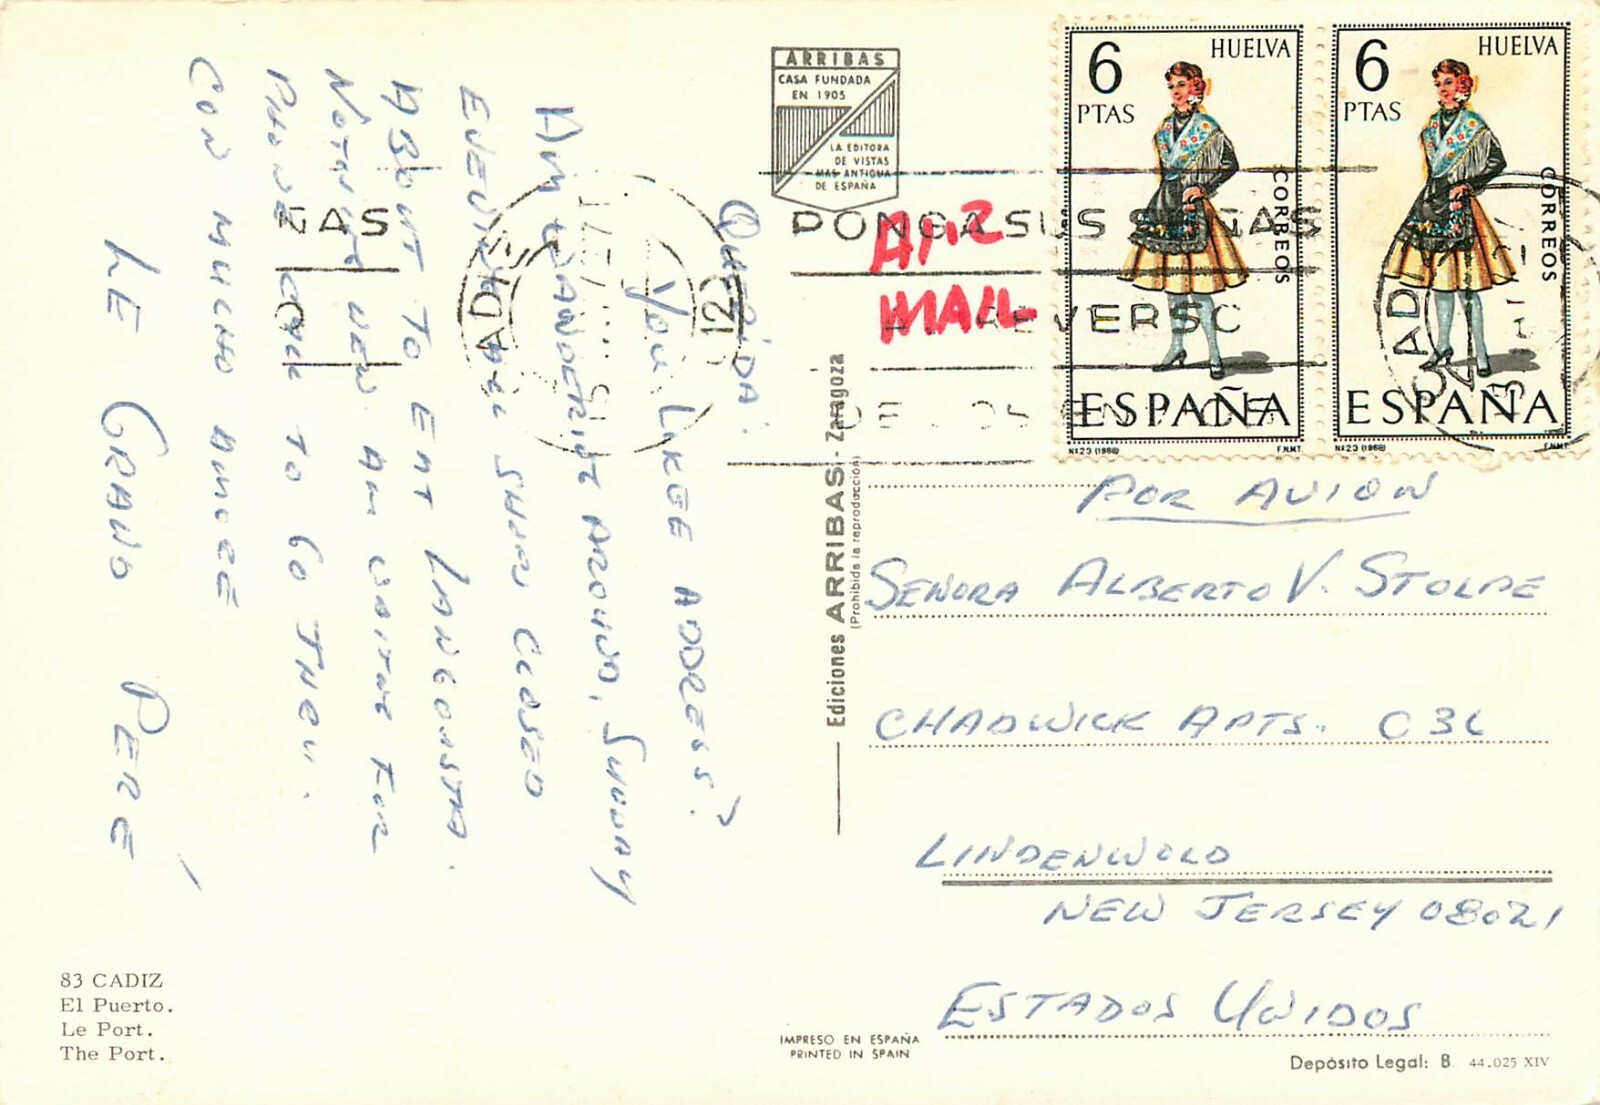 ARRIBAS
CASA FUNDADA
EN 1905
LA EDITORA
DE VISTAS
MAS ANTIGUA
DE ESPAÑA
6
PTAS
HUELVA
CORREOS
ESPAÑA
Nº23 (1968)
F.N.M.T.
6
PTAS
HUELVA
CORREOS
ESPAÑA
Nº23 (1968)
F.N.M.T.
PONGA SUS SEÑAS
REVERSO
ÑAS
AIR
MAIL
QUERIDA:
YOU LIKEE ADDRESS?
AM WANDERING AROUND, SUNDAY
EVENING ALL SHUN CLOSED
ABOUT TO EAT LANGOSTA.
NOTHING NEW AM WAITNG FOR
PHONE CALL TO GO THRU.
CON MUCHO AMORE
LE GRAND PERÉ
POR AVION
SENORA ALBERTO V. STOLPE
CHADWICK APTS. C3L
LINDENWOLD
NEW JERSEY 08021
ESTADOS UNIDOS
Ediciones ARRIBAS - Zaragoza
(Prohibida la reproducción)
83 CADIZ
El Puerto.
Le Port.
The Port.
IMPRESO EN ESPAÑA
PRINTED IN SPAIN
Depósito Legal: B. 44.025 XIV